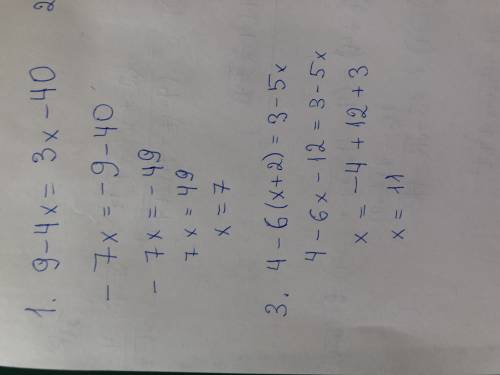 1. 9-4x = 3x-40
-7x = -9-40
-7x = -49
7x = 49
x = 7
3. 4-6(x+2) = 3-5x
4-6x-12 = 3-5x
x = -4+12+3
x = 11
2